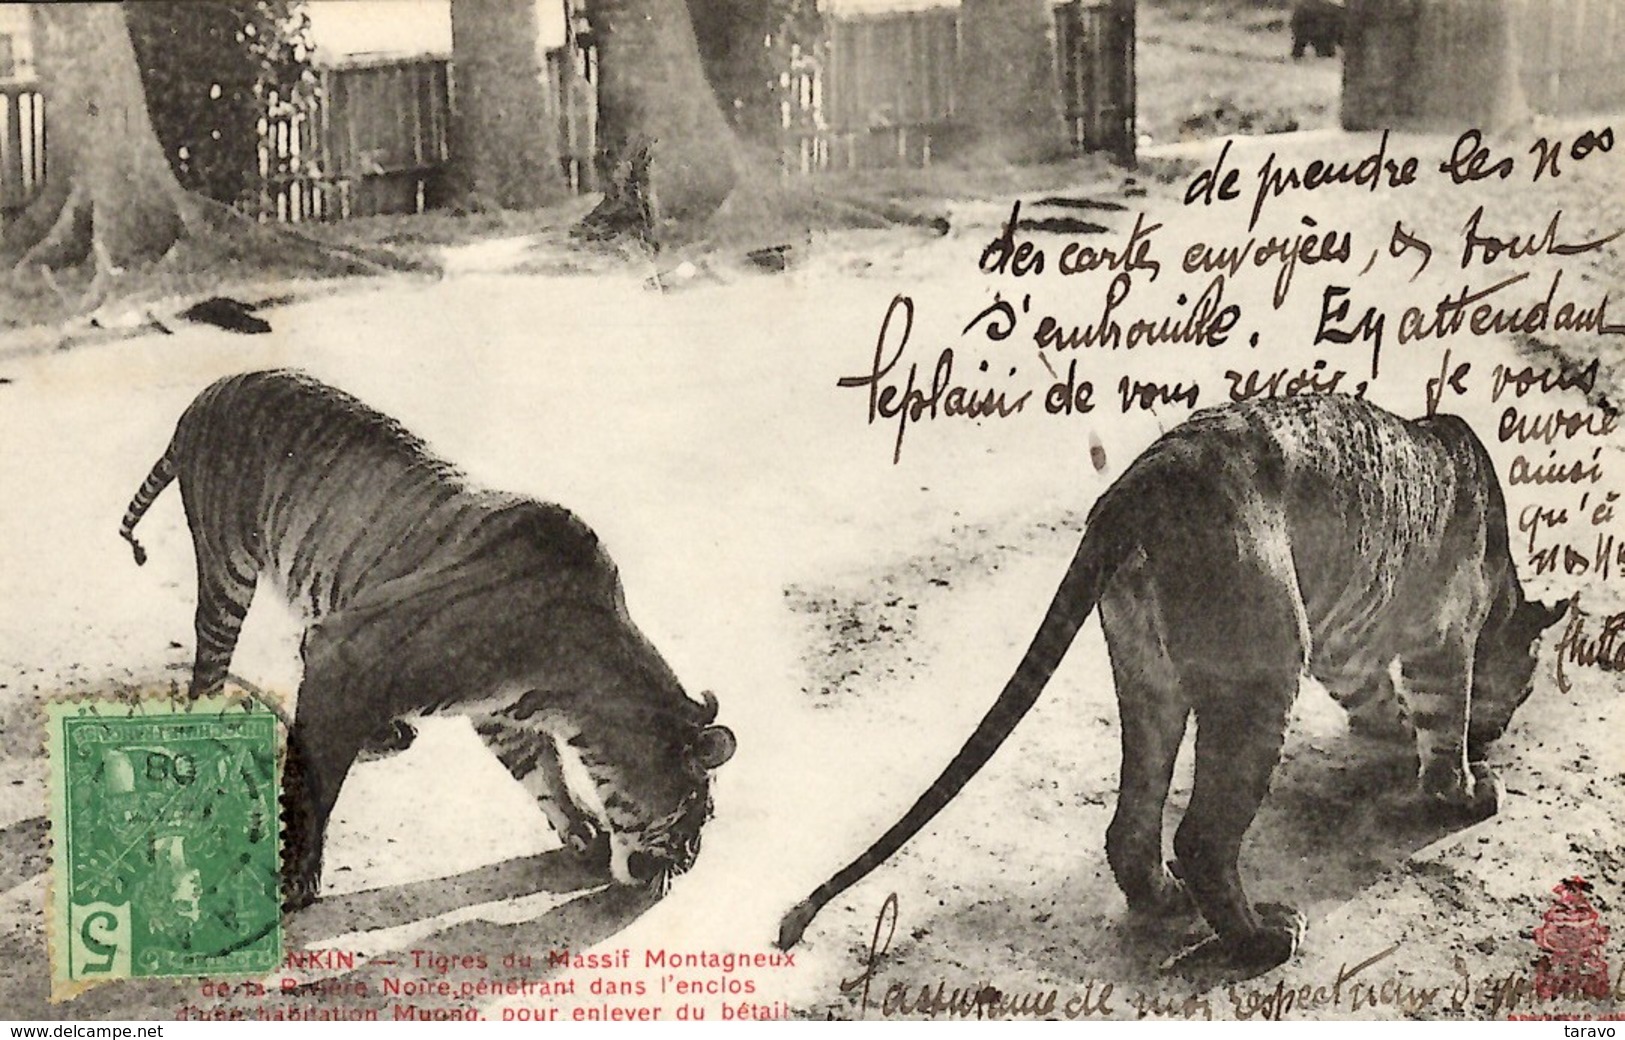 de prendre les nos
des cartes envoyées, & tout
s'embrouille. En attendant
le plaisir de vous revoir, je vous
envoie
ainsi
qu'à
l'assurance de mon respectueux
INDOCHINE FRANÇAISE
5
NKIN — Tigres du Massif Montagneux
de la Rivière Noire, pénétrant dans l'enclos
d'une habitation Muong, pour enlever du bétail
taravo